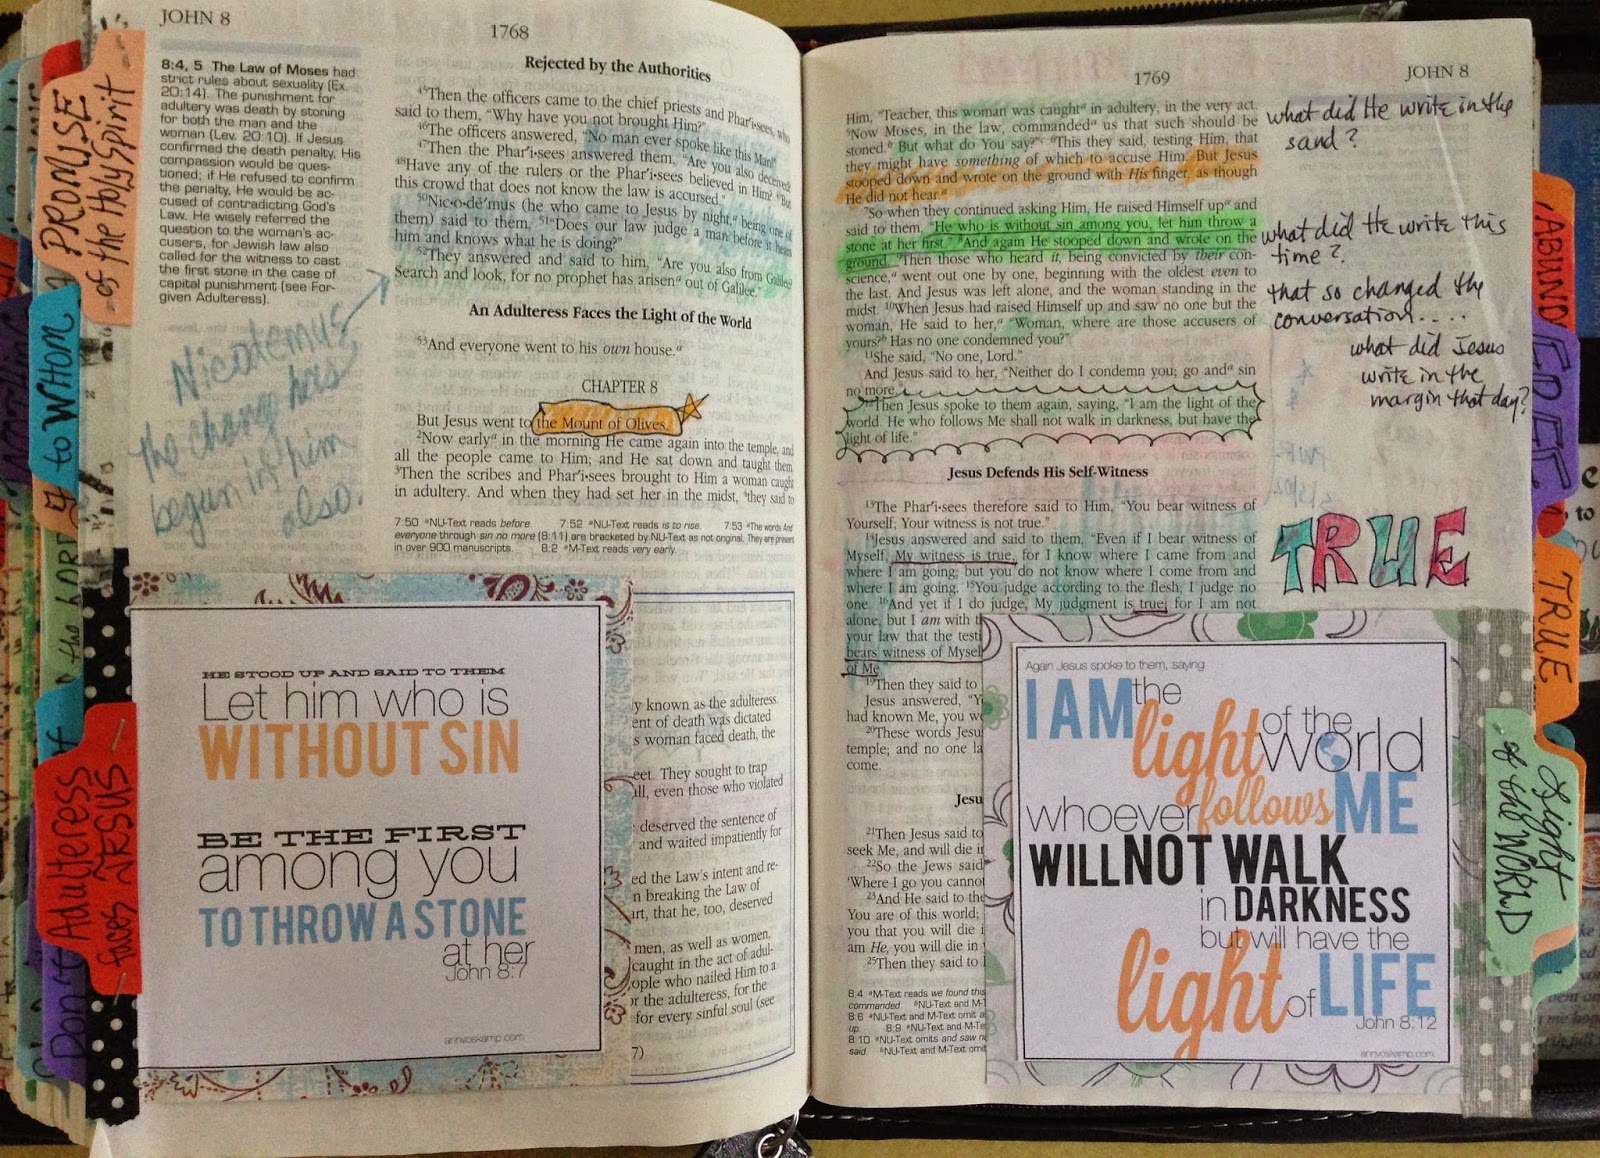 JOHN 8
1768
8:4, 5 The Law of Moses had
strict rules about sexuality (Ex.
20:14). The punishment for
adultery was death by stoning
for both the man and the
woman (Lev. 20:10). If Jesus
confirmed the death penalty, His
compassion would be ques-
tioned; if He refused to confirm
the penalty, He would be ac-
cused of contradicting God's
Law. He wisely referred the
question to the woman's ac-
cusers, for Jewish law also
called for the witness to cast
the first stone in the case of
capital punishment (see For-
given Adulteress).
Nicotemus
the change has
begun in him
also.
Rejected by the Authorities
45Then the officers came to the chief priests and Phar'i·sees, who
said to them, "Why have you not brought Him?"
46The officers answered, "No man ever spoke like this Man!"
47Then the Phar'i·sees answered them, "Are you also deceived?
48Have any of the rulers or the Phar'i·sees believed in Him? 49But
this crowd that does not know the law is accursed."
50Nic·o·dē'mus (he who came to Jesus by night,a being one of
them) said to them, 51"Does our law judge a man before it hears
him and knows what he is doing?"
52They answered and said to him, "Are you also from Galilee?
Search and look, for no prophet has arisena out of Galilee."
An Adulteress Faces the Light of the World
53And everyone went to his own house.a
CHAPTER 8
But Jesus went to the Mount of Olives.
2Now earlya in the morning He came again into the temple, and
all the people came to Him; and He sat down and taught them.
3Then the scribes and Phar'i·sees brought to Him a woman caught
in adultery. And when they had set her in the midst, 4they said to
7:50 aNU-Text reads before. 7:52 aNU-Text reads is to rise. 7:53 aThe words And
everyone through sin no more (8:11) are bracketed by NU-Text as not original. They are present
in over 900 manuscripts. 8:2 aM-Text reads very early.
HE STOOD UP AND SAID TO THEM
Let him who is
WITHOUT SIN
BE THE FIRST
among you
TO THROW A STONE
at her
John 8:7
annvoskamp.com
y known as the adulteress.
ent of death was dictated
s woman faced death, the
eet. They sought to trap
ll, even those who violated
deserved the sentence of
and waited impatiently for
ed the Law's intent and re-
n breaking the Law of
art, that he, too, deserved
men, as well as women,
caught in the act of adul-
ople who nailed Him to a
or the adulteress, for the
for every sinful soul (see
7)
PROMISE
of the Holy Spirit
to WHOM
Adulteress
faces JESUS
Don't
1769
JOHN 8
Him, "Teacher, this woman was caughta in adultery, in the very act.
5Now Moses, in the law, commandeda us that such should be
stoned.b But what do You say?"c 6This they said, testing Him, that
they might have something of which to accuse Him. But Jesus
stooped down and wrote on the ground with His finger, as though
He did not hear.a
7So when they continued asking Him, He raised Himself upa and
said to them, "He who is without sin among you, let him throw a
stone at her first." 8And again He stooped down and wrote on the
ground. 9Then those who heard it, being convicted by their con-
science,a went out one by one, beginning with the oldest even to
the last. And Jesus was left alone, and the woman standing in the
midst. 10When Jesus had raised Himself up and saw no one but the
woman, He said to her,a "Woman, where are those accusers of
yours?b Has no one condemned you?"
11She said, "No one, Lord."
And Jesus said to her, "Neither do I condemn you; go anda sin
no more."
12Then Jesus spoke to them again, saying, "I am the light of the
world. He who follows Me shall not walk in darkness, but have the
light of life."
Jesus Defends His Self-Witness
13The Phar'i·sees therefore said to Him, "You bear witness of
Yourself; Your witness is not true."
14Jesus answered and said to them, "Even if I bear witness of
Myself, My witness is true, for I know where I came from and
where I am going; but you do not know where I come from and
where I am going. 15You judge according to the flesh; I judge no
one. 16And yet if I do judge, My judgment is true; for I am not
alone, but I am with t
your law that the testi
bears witness of Mysel
of Me
19Then they said to
Jesus answered, "Y
had known Me, you w
20These words Jesu
temple; and no one la
come.
Jesu
21Then Jesus said to
seek Me, and will die i
22So the Jews said
'Where I go you canno
23And He said to the
You are of this world;
you that you will die i
am He, you will die in
25Then they said to
8:4 aM-Text reads we found this
commanded. bNU-Text and M-T
8:6 aNU-Text and M-Text omit a
up. 8:9 aNU-Text and M-Te
8:10 aNU-Text omits and saw n
said. bNU-Text and M-Text omit
what did He write in the
sand?
what did He write this
time?
that so changed the
conversation....
what did Jesus
write in the
margin that day?
TRUE
Again Jesus spoke to them, saying
I AM the
light of the
world
whoever follows ME
WILL NOT WALK
in DARKNESS
but will have the
light of LIFE
John 8:12
annvoskamp.com
TRUE
Light
of the WORLD